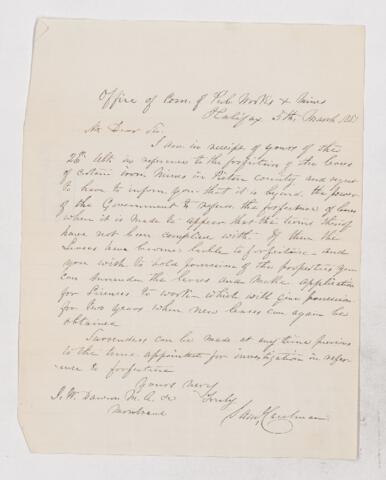 Office of Com. of Pub. Works & Mines
Halifax 5th March 1881
My Dear Sir.
I am in receipt of yours of the
26th Ult. in reference to the forfeiture of the leases
of certain iron mines in Pictou County and regret
to have to inform you that it is beyond the power
of the Government to refuse the forfeiture of leases
when it is made to appear that the terms thereof
have not been complied with. If then the
leases have become liable to forfeiture and
you wish to hold possession of the properties you
can surrender the leases and make application
for licenses to work which will give possession
for two years when new leases can again be
obtained
Surrenders can be made at any time previous
to the time appointed for investigation in refer-
ence to forfeiture
Yours very
Truly
J. W. Dawson M. A. &c
Montreal